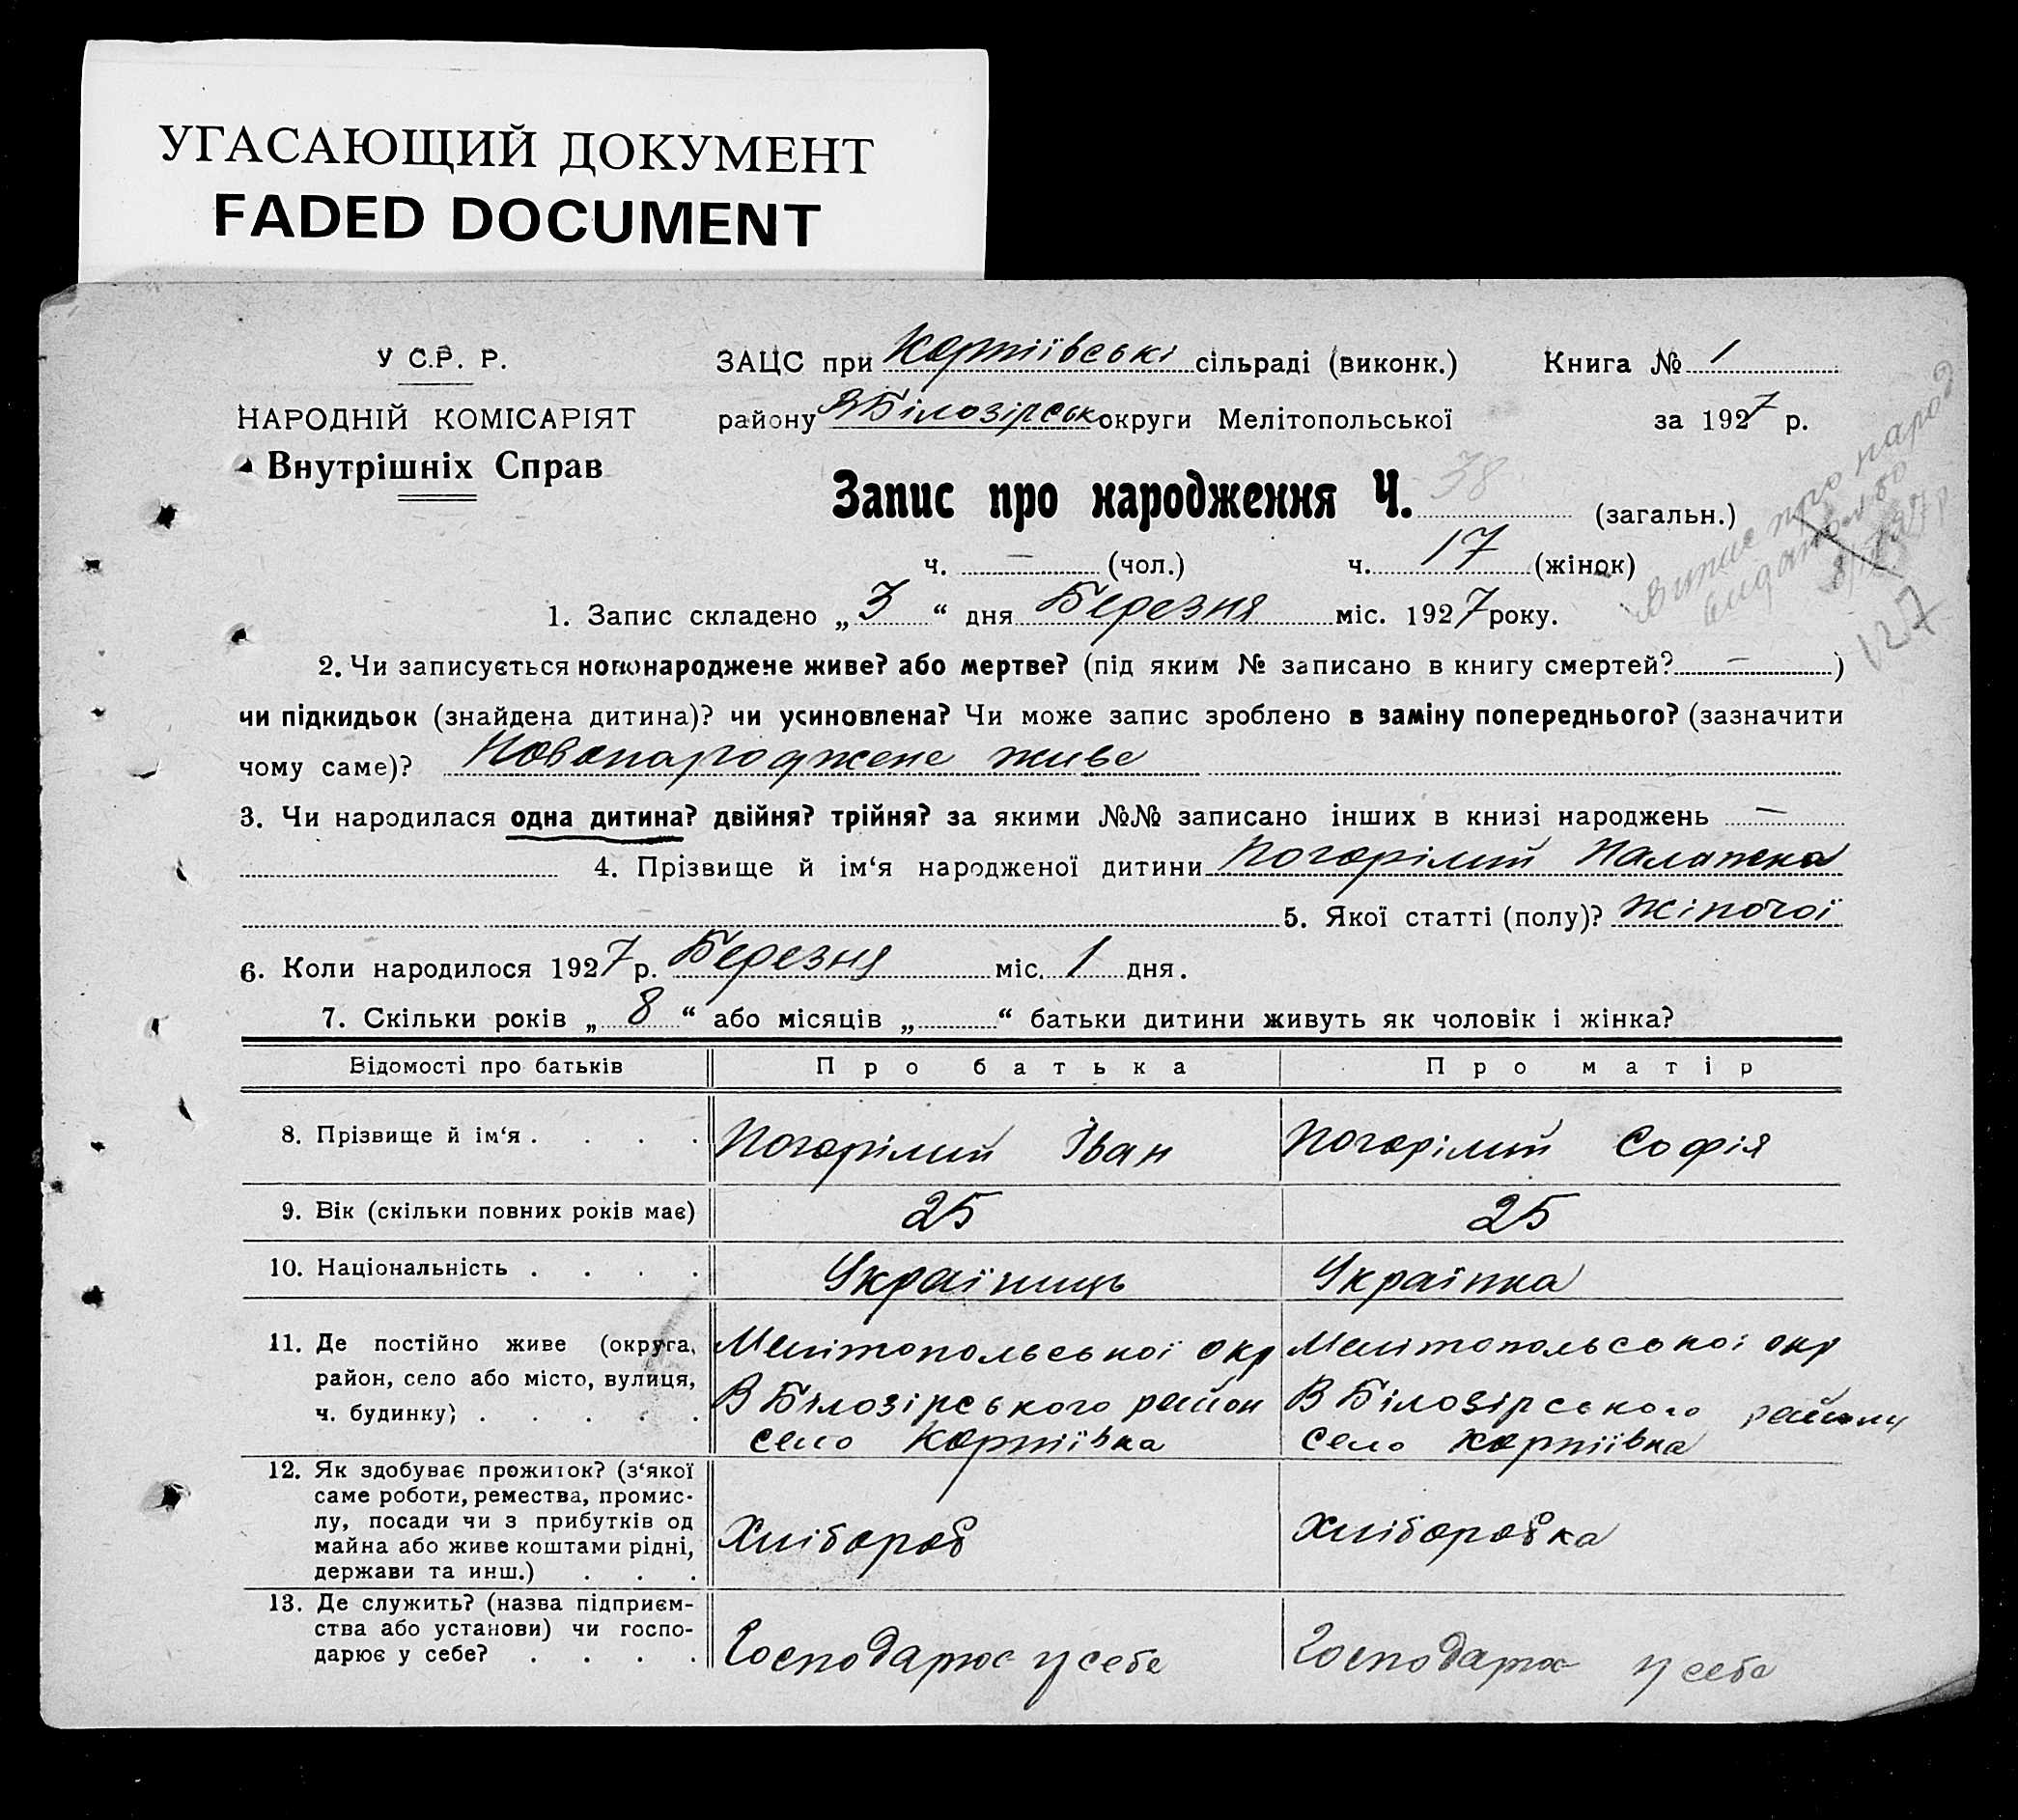 УГАСАЮЩИЙ ДОКУМЕНТ
FADED DOCUMENT
У С.Р. Р.
НАРОДНІЙ КОМІСАРІЯТ
Внутрішніх Справ
ЗАЦС при сільраді (виконк.) Книга № 1
району ВБілозірськ округи Мелітопольської за 1927 р.
Запис про народження Ч. 38 (загальн.)
ч. — (чол.) ч. 17 (жінок)
Витис про народ
видано
127
1. Запис складено „ 3 “ дня Березня міс. 1927 року.
2. Чи записується новонароджене живе? або мертве? (під яким № записано в книгу смертей? — )
чи підкидьок (знайдена дитина)? чи усиновлена? Чи може запис зроблено в заміну попереднього? (зазначити
чому саме)? Новонароджене живе
3. Чи народилася одна дитина? двійня? трійня? за якими №№ записано інших в книзі народжень —
4. Прізвище й ім‘я народженої дитини Погорілий Палажка
5. Якої статті (полу)? Жіночої
6. Коли народилося 1927 р. Березня міс. 1 дня.
7. Скільки років „ 8 “ або місяців „ “ батьки дитини живуть як чоловік і жінка?
Відомості про батьків Про батька Про матір
8. Прізвище й ім‘я . . . . Погорілий Іван Погорілий Софія
9. Вік (скільки повних років має) 25 25
10. Національність . . . . Україниць Українка
11. Де постійно живе (округа, Мелітопольської окр Мелітопольської окр
район, село або місто, вулиця, В Білозірського район В Білозірського району
ч. будинку) . . . . . село село
12. Як здобуває прожиток? (з‘якої
саме роботи, ремества, промис-
лу, посади чи з прибутків од Хлібороб Хліборобка
майна або живе коштами рідні,
держави та инш.) . . .
13. Де служить? (назва підприєм-
ства або установи) чи госпо-
дарює у себе? . . . . Господарює у себе Господарює у себе